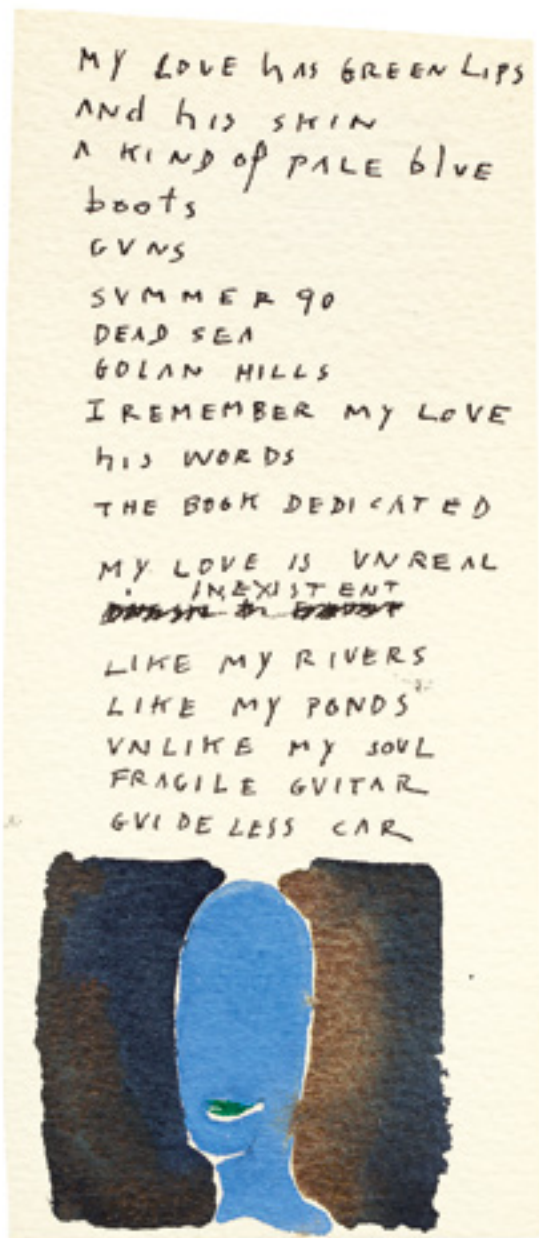 MY LOVE hAS GREEN LIPS
ANd hIS SKIN
A KIND of PALE blVE
boots
GVNS
SVMMER 90
DEAD SEA
GOLAN HILLS
I REMEMBER MY LOVE
hIS WORDS
THE BOOK DEDICATED
MY LOVE IS VNREAL
INEXISTENT
LIKE MY RIVERS
LIKE MY PONDS
VNLIKE MY SOUL
FRAGILE GVITAR
GVIDELESS CAR